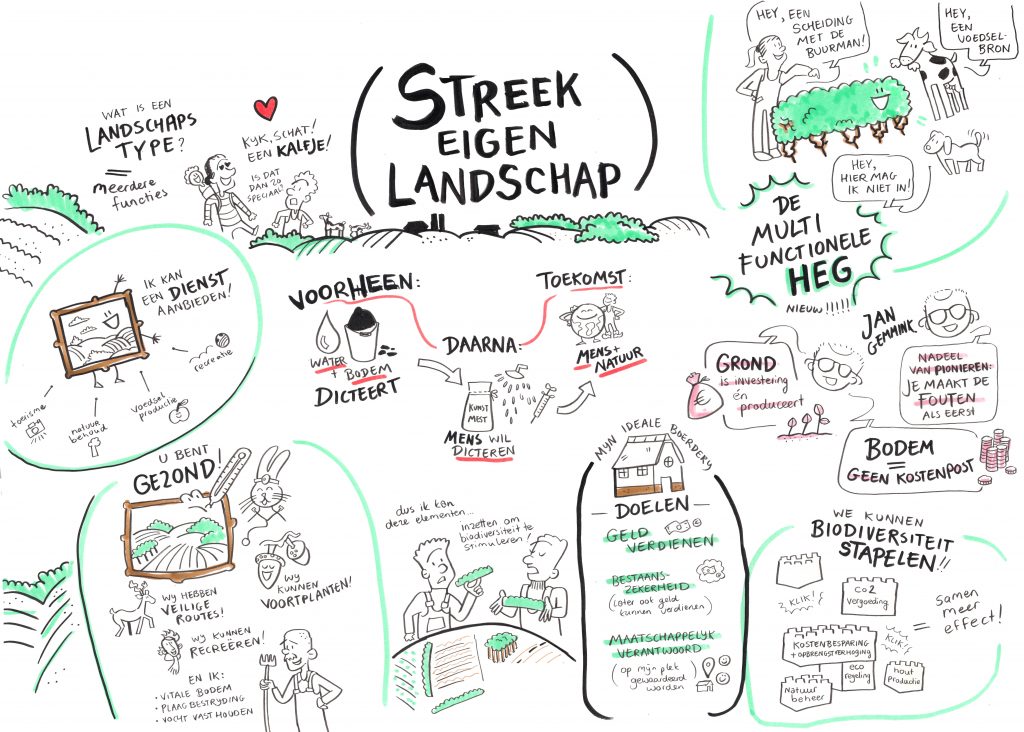 STREEK
EIGEN
LANDSCHAP
WAT IS EEN
LANDSCHAPS
TYPE?
=
meerdere
functies
KIJK, SCHAT!
EEN KALFJE!
IS DAT
DAN ZO
SPECIAAL?
HEY, EEN
SCHEIDING
MET DE
BUURMAN!
HEY,
EEN
VOEDSEL-
BRON
HEY,
HIER MAG
IK NIET IN!
DE
MULTI
FUNCTIONELE
HEG
NIEUW!!!!!
IK KAN
EEN DIENST
AANBIEDEN!
recreatie
voedsel
productie
natuur
behoud
toerisme
VOORHEEN:
WATER
+ BODEM
DICTEERT
DAARNA:
KUNST
MEST
MENS WIL
DICTEREN
TOEKOMST:
MENS+
NATUUR
JAN
GEMMINK
GROND
IS INVESTERING
én
produceert
€
NADEEL
VAN PIONIEREN:
JE MAAKT DE
FOUTEN
ALS EERST
BODEM
=
GEEN KOSTENPOST
U BENT
GEZOND!
WIJ
KUNNEN
VOORTPLANTEN!
WIJ HEBBEN
VEILIGE
ROUTES!
WIJ KUNNEN
RECREËREN!
EN IK:
• VITALE BODEM
• PLAAGBESTRIJDING
• VOCHT VASTHOUDEN
dus ik kan
deze elementen...
inzetten om
biodiversiteit te
stimuleren!
MIJN IDEALE BOERDERIJ
— DOELEN —
GELD
VERDIENEN
BESTAANS-
ZEKERHEID
(later ook geld
kunnen verdienen)
MAATSCHAPPELIJK
VERANTWOORD
(op mijn plek
gewaardeerd
worden)
WE KUNNEN
BIODIVERSITEIT
STAPELEN!!
KLIK!
CO2
vergoeding
KOSTENBESPARING
+ OPBRENGSTVERHOGING
KLIK!
eco
regeling
hout
productie
Natuur
beheer
= Samen
meer
effect!